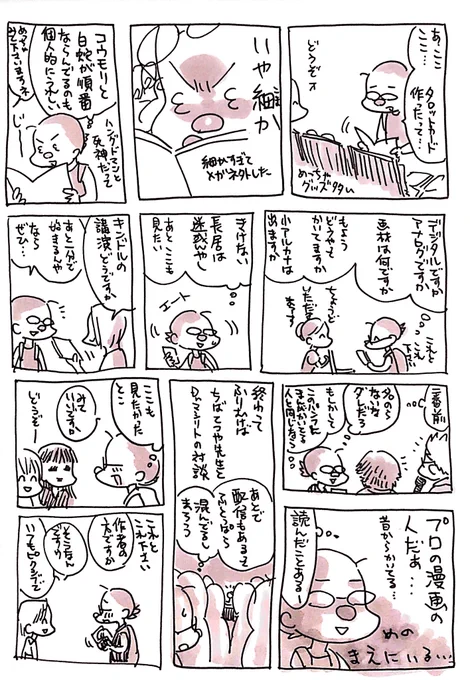 あ、ここ
ここ
タロットカード
作ったって…
どうぞ
めっちゃ
グッズタい
いや細か
細かすぎて
メガネタトした
コウモリと
白蛇が順番
ならんでるのも
個人的にうれしい
ハングドマンと
死神だって
めっちゃ
みて下さいますネ
じー
デジタルですか
アナログですか
画材は何ですか
もちょう
どうやって
かいてますか
小アルカナは
出ますか
これと
これ
下さい
ちょうど
いただき
まーす
きりがない
長居は
迷惑やし
あとここも
見たい
エート
キンドルの
講演どうですか
あと一分で
始まるんや
なら
ぜひ…
一番前
タダの
なかなか
ダメだろ
もしかして
このバシった
まんがかいてる
人と同じなら
終わって
ふりむけば
ちばてつや先生と
ドメリットの対談
あとで
配信もあるって
混んでるし
まろう
ここも
見たかった
とこ
みて
いいですか
どうぞー
プロの漫画の
人だぁ…
昔からかいてる…
読んだことあるー
めの
まえにいる…
これと
これ下さい
作者の
方ですか
そうなん
ですか
いつもピクシブで